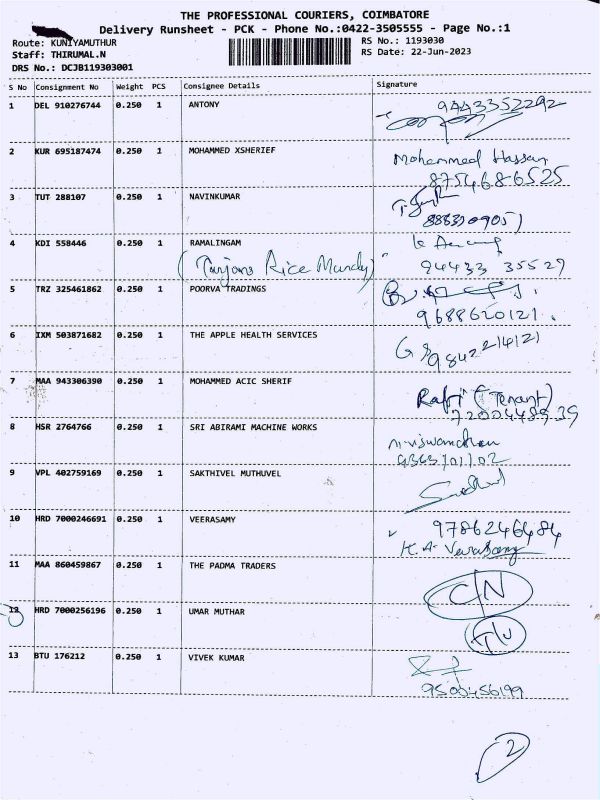 THE PROFESSIONAL COURIERS, COIMBATORE
Delivery Runsheet - PCK - Phone No.:0422-3505555 - Page No.:1
Route: KUNIYAMUTHUR
RS No.: 1193030
Staff: THIRUMAL.N
RS Date: 22-Jun-2023
DRS No.: DCJB119303001
S No Consignment No Weight PCS Consignee Details Signature
1 DEL 910276744 0.250 1 ANTONY 9443352292
2 KUR 695187474 0.250 1 MOHAMMED XSHERIEF Mohammed Hassan
8754686525
3 TUT 288107 0.250 1 NAVINKUMAR
4 KDI 558446 0.250 1 RAMALINGAM
Rice Mundy) 94433 35529
5 TRZ 325461862 0.250 1 POORVA TRADINGS
9688620121.
6 IXM 503871682 0.250 1 THE APPLE HEALTH SERVICES
7 MAA 943306390 0.250 1 MOHAMMED ACIC SHERIF
Rafi (Tenant)
8 HSR 2764766 0.250 1 SRI ABIRAMI MACHINE WORKS
9 VPL 402759169 0.250 1 SAKTHIVEL MUTHUVEL
10 HRD 7000246691 0.250 1 VEERASAMY 9786246484
11 MAA 860459867 0.250 1 THE PADMA TRADERS
C/N
12 HRD 7000256196 0.250 1 UMAR MUTHAR
13 BTU 176212 0.250 1 VIVEK KUMAR
9500456199
2